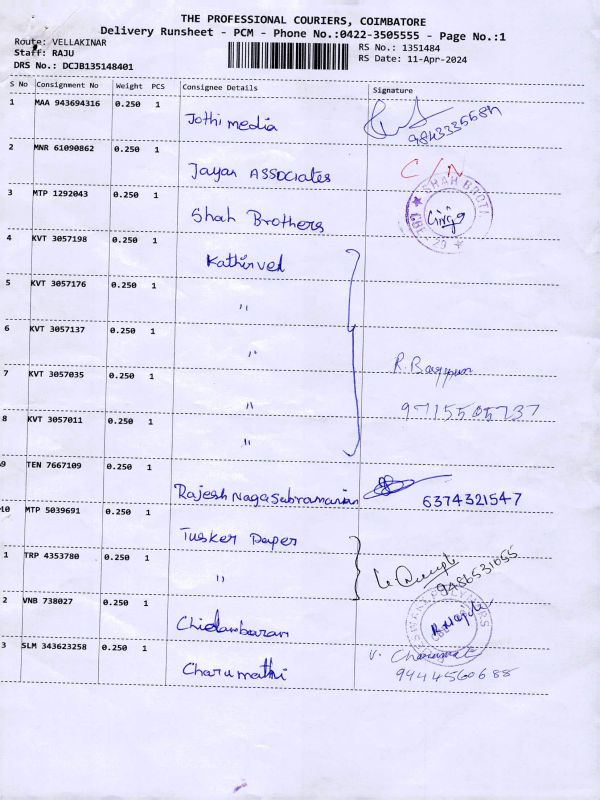 THE PROFESSIONAL COURIERS, COIMBATORE
Delivery Runsheet - PCM - Phone No.:0422-3505555 - Page No.:1
Route: VELLAKINAR
Staff: RAJU
DRS No.: DCJB135148401
RS No.: 1351484
RS Date: 11-Apr-2024
S No Consignment No Weight PCS Consignee Details Signature
1 MAA 943694316 0.250 1 Jothi media
2 MNR 61090862 0.250 1 Jayan ASSOCiates C/N
3 MTP 1292043 0.250 1 Shah Brothers
4 KVT 3057198 0.250 1 Kathirvel
5 KVT 3057176 0.250 1 "
6 KVT 3057137 0.250 1 "
7 KVT 3057035 0.250 1 " R.
8 KVT 3057011 0.250 1 " 9715505737
9 TEN 7667109 0.250 1 Rajesh Nagasubramanian 6374321547
10 MTP 5039691 0.250 1 Tusker Paper
1 TRP 4353780 0.250 1 " 9486531055
2 VNB 738027 0.250 1 Chidambaram
3 SLM 343623258 0.250 1 Charumathi V.
9444560688